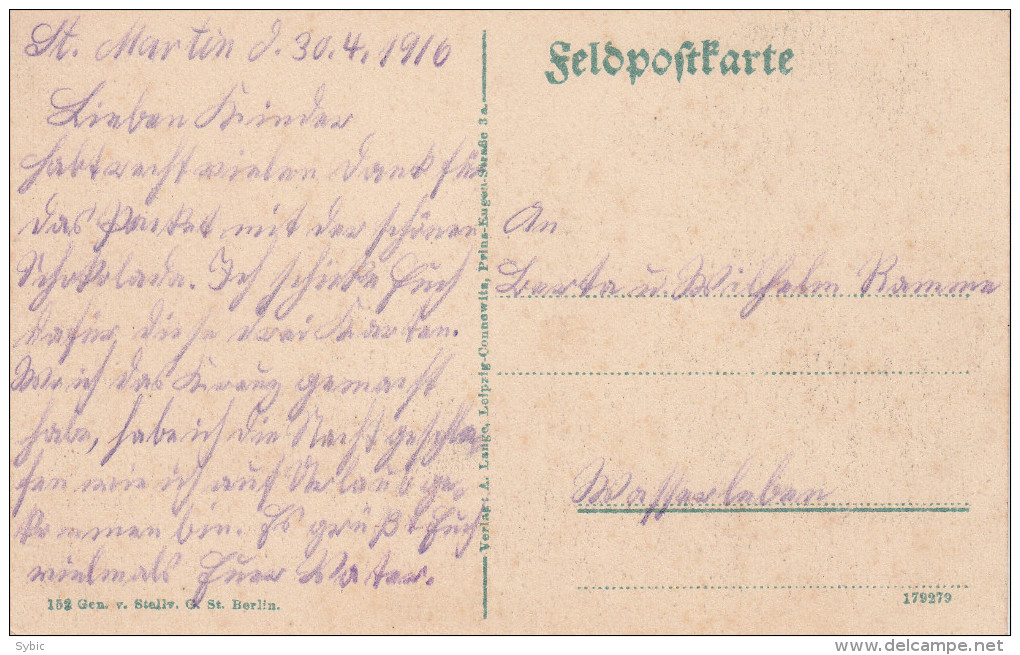 St. Martin d. 30.4.1916
Lieben Kinder
habt recht vielen Dank für
das Packet mit der schönen
Schokolade. Ich schicke Euch
dafür diese drei Karten.
Wo ich das Kreuz gemacht
habe, habe ich die Nacht geschla
fen wie ich auf Urlaub ge-
kommen bin. Es grüßt Euch
vielmals Euer Vater.
152 Gen. v. Stellv. G. St. Berlin.
Verlag: A. Lange, Leipzig-Connewitz, Prinz-Eugen-Straße 3a.
Feldpostkarte
An
Berta u. Wilhelm Ramme
Wasserleben
179279
Sybic
delcampe.net